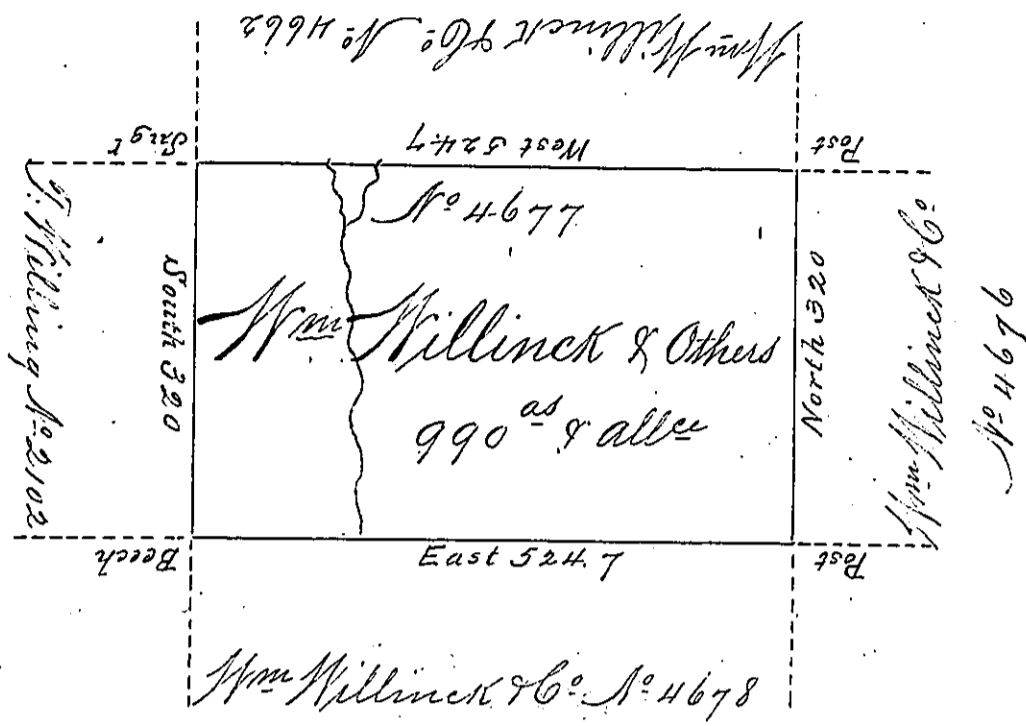 Wm Willinck & Co. No. 4662
Sug r
West 524.7
Post
No 4677
T. Willing No 2102
South 320
Wm Willinck & Others
990 as & allce
North 320
Wm Willinck & Co.
No 4676
Beech
East 524.7
Post
Wm Willinck & Co. No 4678